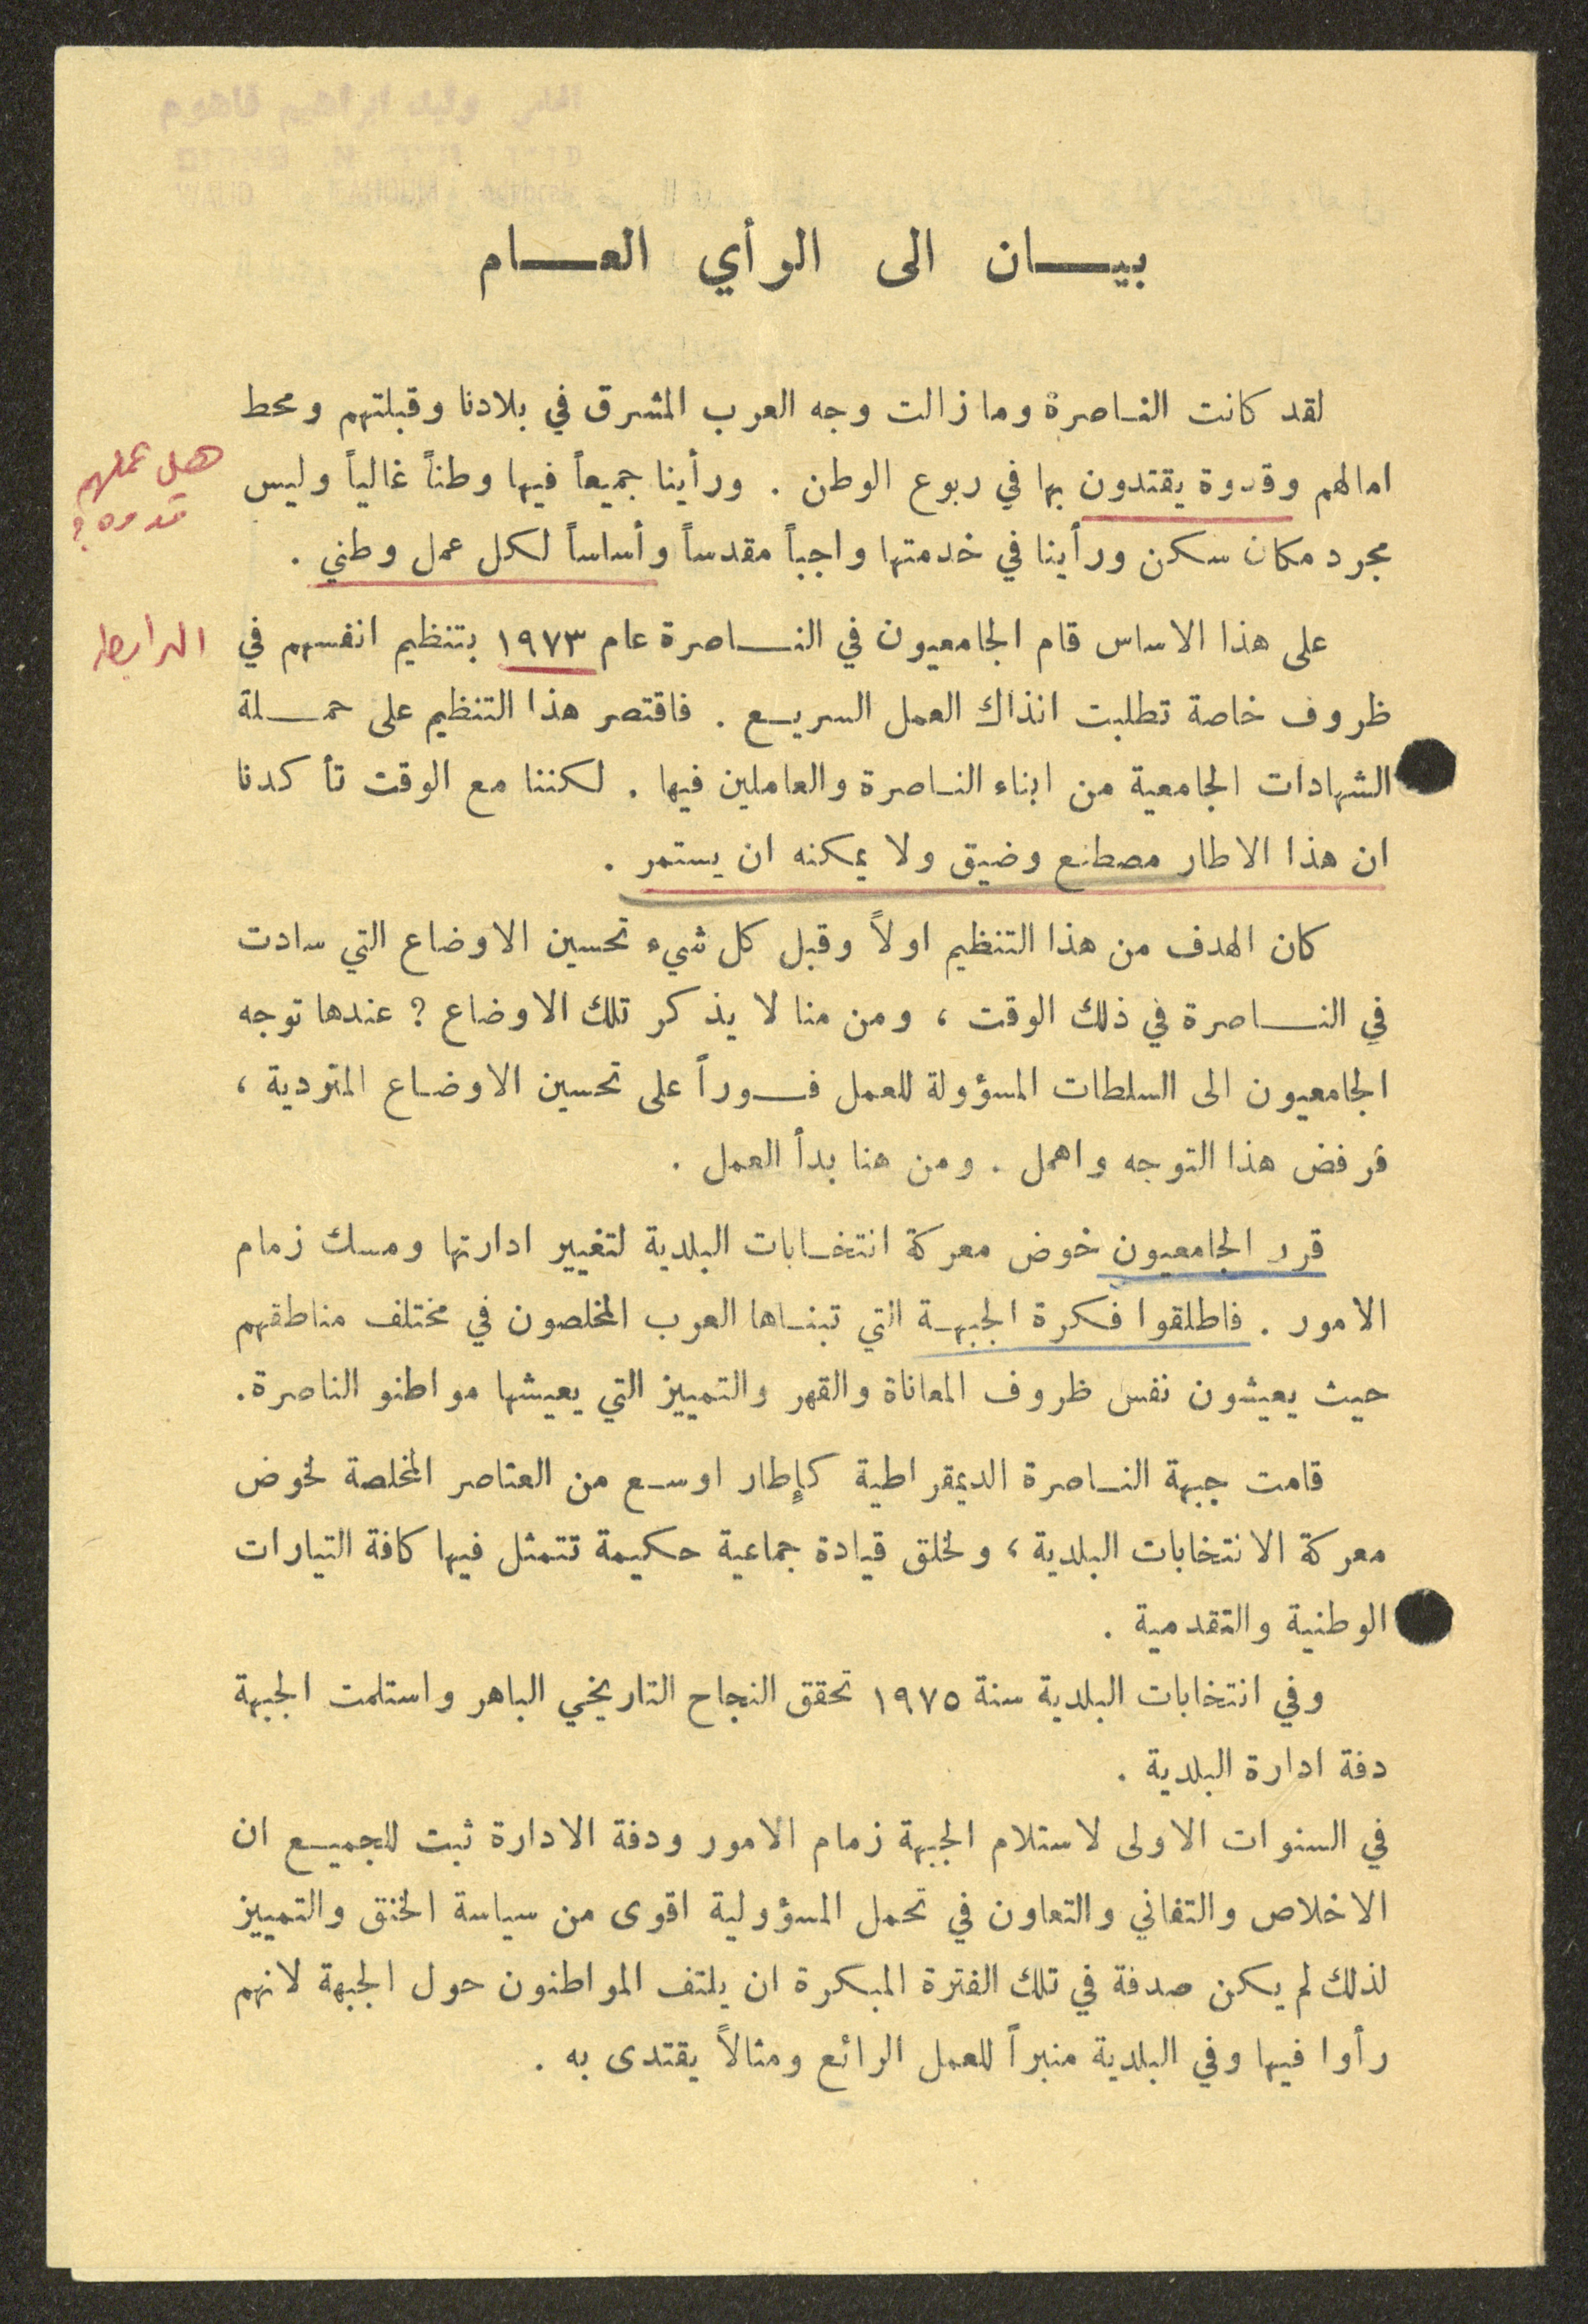 المحامي وليد ابراهيم فاهوم
WALID
بيـــان الى الرأي العـــام
لقد كانت الناصرة وما زالت وجه العرب المشرق في بلادنا وقبلتهم ومحط
امالهم وقدوة يقتدون بها في ربوع الوطن . ورأينا جميعاً فيها وطناً غالياً وليس
هل عملهم
قدوه؟
مجرد مكان سكن ورأينا في خدمتها واجباً مقدساً وأساساً لكل عمل وطني .
على هذا الاساس قام الجامعيون في النـــاصرة عام ١٩٧٣ بتنظيم انفسهم في
الرابطه
ظروف خاصة تطلبت انذاك العمل السريـع . فاقتصر هذا التنظيم على حمـــلة
الشهادات الجامعية من ابناء الناصرة والعاملين فيها . لكننا مع الوقت تأكدنا
ان هذا الاطار مصطنع وضيق ولا يمكنه ان يستمر .
كان الهدف من هذا التنظيم اولاً وقبل كل شيء تحسين الاوضاع التي سادت
في النـــاصرة في ذلك الوقت ، ومن منا لا يذكر تلك الاوضاع ؟ عندها توجه
الجامعيون الى السلطات المسؤولة للعمل فـــوراً على تحسين الاوضاع المتردية ،
فرفض هذا التوجه واهمل . ومن هنا بدأ العمل .
قرر الجامعيون خوض معركة انتخابات البلدية لتغيير ادارتها ومسك زمام
الامور . فاطلقوا فكرة الجبهـة التي تبنـاها العرب المخلصون في مختلف مناطقهم
حيث يعيشون نفس ظروف المعاناة والقهر والتمييز التي يعيشها مواطنو الناصرة.
قامت جبهة النـاصرة الديمقراطية كإطار اوسـع من العناصر المخلصة لخوض
معركة الانتخابات البلدية ، ولخلق قيادة جماعية حكيمة تتمثل فيها كافة التيارات
الوطنية والتقدمية .
وفي انتخابات البلدية سنة ١٩٧٥ تحقق النجاح التاريخي الباهر واستلمت الجبهة
دفة ادارة البلدية .
في السنوات الاولى لاستلام الجبهة زمام الامور ودفة الادارة ثبت للجميـع ان
الاخلاص والتفاني والتعاون في تحمل المسؤولية اقوى من سياسة الخنق والتمييز
لذلك لم يكن صدفة في تلك الفترة المبكرة ان يلتف المواطنون حول الجبهة لانهم
رأوا فيها وفي البلدية منبراً للعمل الرائع ومثالاً يقتدى به .